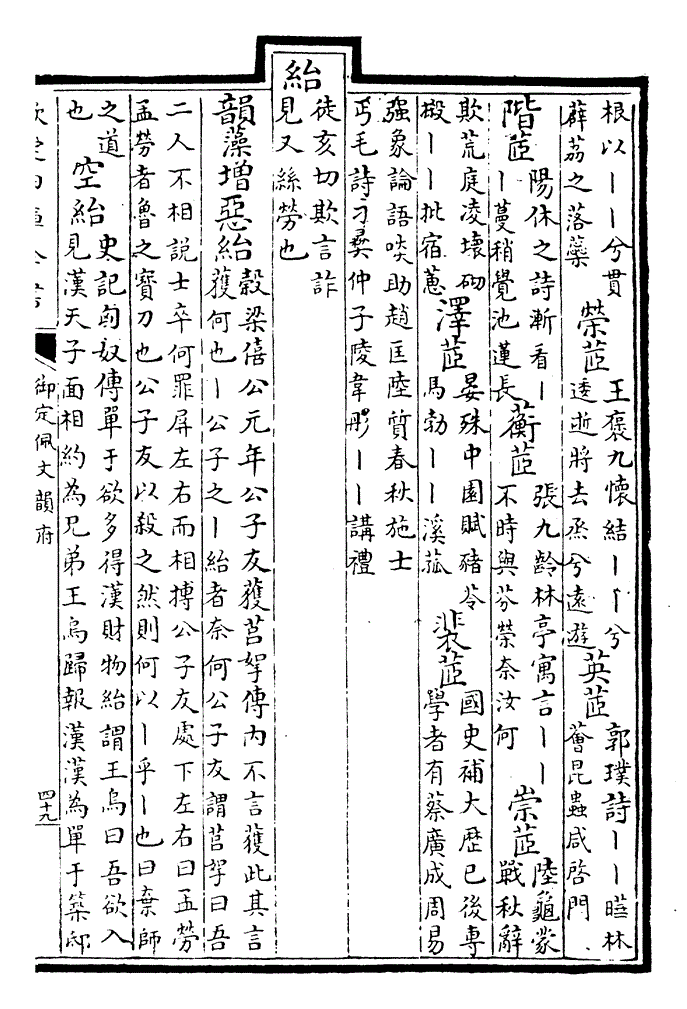 根以丨丨兮貫
薜荔之落蘂
榮茝
王褒九懷結丨丨兮
逶逝將去烝兮遠遊
英茝
郭璞詩丨丨曬林
薈昆蟲咸啓門
階茝
陽休之詩漸看丨
丨蔓稍覺池蓮長
蘅茝
張九齡林亭寓言丨丨
不時與芬榮奈汝何
崇茝
陸龜蒙
戰秋辭
欺荒庭凌壞砌
㩧丨丨批宿蕙
澤茝
晏殊中園賦豬苓
馬勃丨丨溪菰
裴茝
國史補大歴已後專
學者有蔡廣成周易
强象論語啖助趙匡陸質春秋施士
丐毛詩刁彛仲子陵韋彤丨丨講禮
紿
徒亥切欺言詐
見又絲勞也
韻藻增
惡紿
穀梁僖公元年公子友獲莒挐傳内不言獲此其言
獲何也丨公子之丨紿者奈何公子友謂莒挐曰吾
二人不相説士卒何罪屏左右而相搏公子友處下左右曰孟勞
孟勞者魯之寶刀也公子友以殺之然則何以丨乎丨也曰棄師
之道
也
空紿
史記匈奴傳單于欲多得漢財物紿謂王烏曰吾欲入
見漢天子面相約為兄弟王烏歸報漢漢為單于築邸
御定佩文韻府
四十九